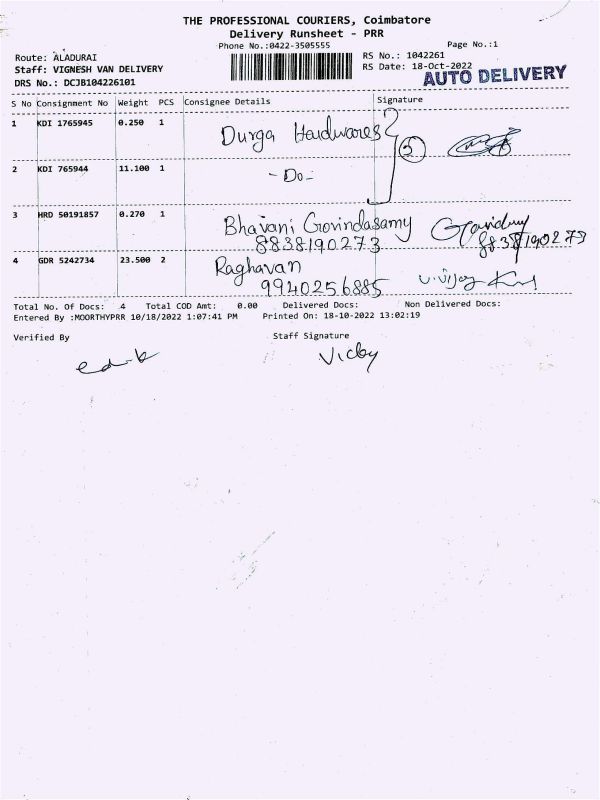 THE PROFESSIONAL COURIERS, Coimbatore
Delivery Runsheet - PRR
Phone No.:0422-3505555
Page No.:1
Route: ALADURAI
RS No.: 1042261
Staff: VIGNESH VAN DELIVERY
RS Date: 18-Oct-2022
DRS No.: DCJB104226101
AUTO DELIVERY
S No Consignment No Weight PCS Consignee Details Signature
1 KDI 1765945 0.250 1 Durga Hardwares 3
2 KDI 765944 11.100 1 - Do -
3 HRD 50191857 0.270 1 Bhavani Govindasamy
8838190273 8838190273
4 GDR 5242734 23.500 2 Raghavan
9940256885
Total No. Of Docs: 4 Total COD Amt: 0.00 Delivered Docs: Non Delivered Docs:
Entered By :MOORTHYPRR 10/18/2022 1:07:41 PM Printed On: 18-10-2022 13:02:19
Verified By Staff Signature
Vicky